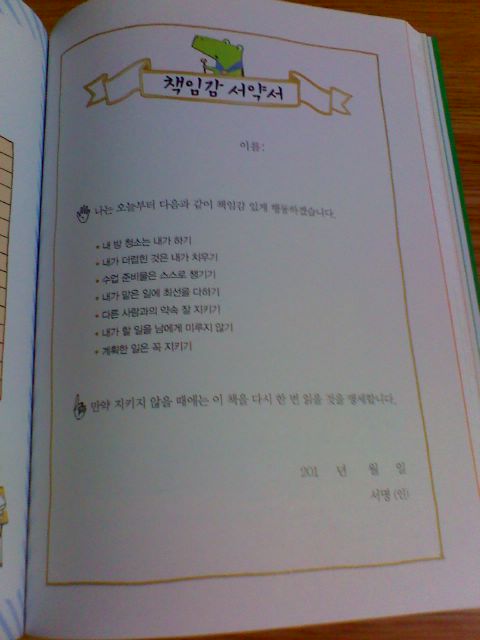 책임감 서약서
이름:
나는 오늘부터 다음과 같이 책임감 있게 행동하겠습니다.
• 내 방 청소는 내가 하기
• 내가 더럽힌 것은 내가 치우기
• 수업 준비물은 스스로 챙기기
• 내가 맡은 일에 최선을 다하기
• 다른 사람과의 약속 잘 지키기
• 내가 할 일을 남에게 미루지 않기
• 계획한 일은 꼭 지키기
만약 지키지 않을 때에는 이 책을 다시 한 번 읽을 것을 맹세합니다.
201 년 월 일
서명 (인)